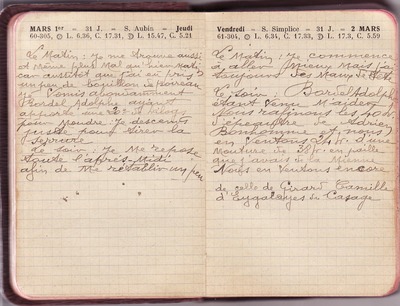 MARS 1er — 31 J. — S. Aubin — Jeudi
60-305, L. 6.36, C. 17.31, D L. 15.47, C. 5.21
Le Matin : Je me trouve aussi
et même plus Mal qu'hier Matin
car aussitôt que j'ai eu pris
un peu de bouillon de Poireau
je Vomis abondamment
Bordel Adolphe ayant
apporté une
pour Moudre. Je descends
juste pour tirer la
serrure
Le soir : Je Me repose
toute l'après-Midi
afin de Me rétablir un peu
Vendredi — S. Simplice — 31 J. — 2 MARS
61-304, L. 6.34, C. 17.33, D L. 17.3, C. 5.59
Le Matin : Je commence
à aller Mieux Mais j'ai
toujours des Maux de tête
Le soir : Bordel Adolphe
étant Venu M'aider
Nous rafinons les
d'épeautre de
Bonhomme et nous
en Ventons 24 d'une
Mouture de 38
que j'avais de la Mienne
Nous en Ventons encore
de celle de Girard Camille
d'Eygalayes